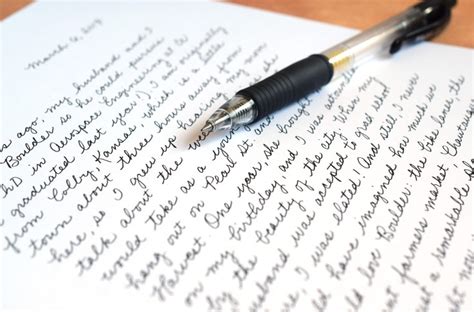 March 6, 2017
s ago, my husband and I
Boulder so he could pursue
hD in Aerospace Engineering at
n graduated last year!) I am originally
from Colby, Kansas which is a little
town about three hours away from
here, so I grew up hearing my mom
talk about the
would take as a young
hang out on Pearl St. and
Harvest. One year, she brought
on my birthday and I was
by the beauty of the city. When my
husband was accepted to grad school
, I was elated! And still, I never
ld have imagined how much we
ld love Boulder: the bike lanes, the
farmers market,
just a remarkable